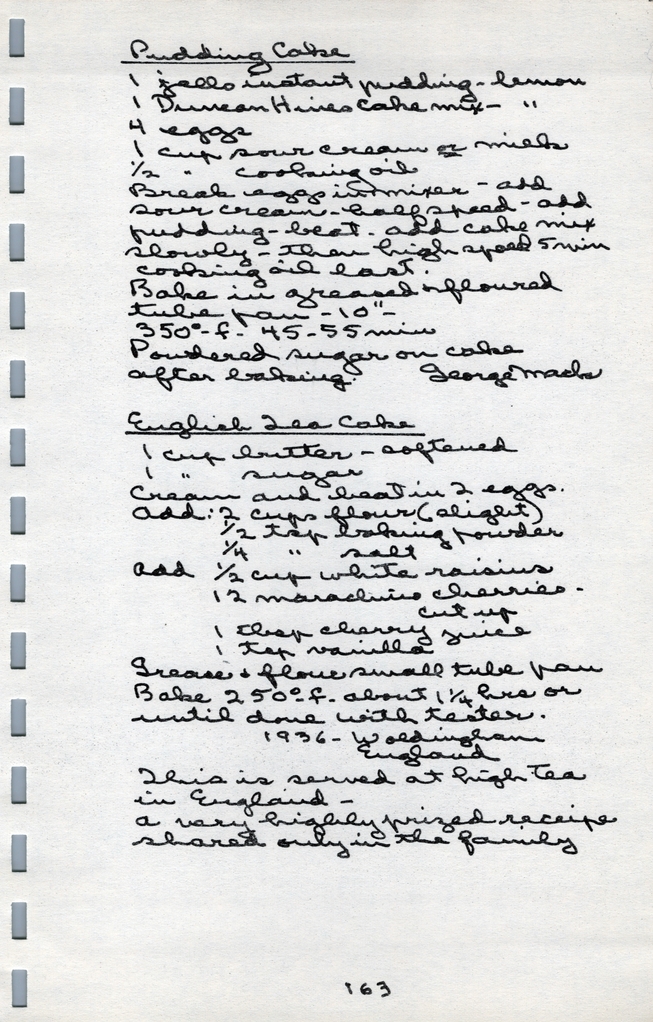 Pudding Cake
1 Jello instant pudding - lemon
1 Duncan Hines cake mix - "
4 eggs
1 cup sour cream or milk
1/2 " cooking oil
Break eggs in mixer - add
sour cream - half speed - add
pudding - beat. add cake mix
slowly - then high speed 5 min
cooking oil last.
Bake in greased + floured
tube pan - 10" -
350°-f- 45-55 min
Powdered sugar on cake
after baking. George Macks
English Tea Cake
1 cup butter - softened
1 " sugar
Cream and beat in 2 eggs.
Add: 2 cups flour (slight)
1/2 tsp baking powder
1/4 " salt
Add 1/2 cup white raisins
12 marachino cherries -
cut up
1 tbsp cherry juice
1 tsp vanilla
Grease + flour small tube pan
Bake 250°-f- about 1 1/4 hrs or
until done with tester.
1936 - Woldingham
England
This is served at high tea
in England -
a very highly prized receipe
shared only in the family
163